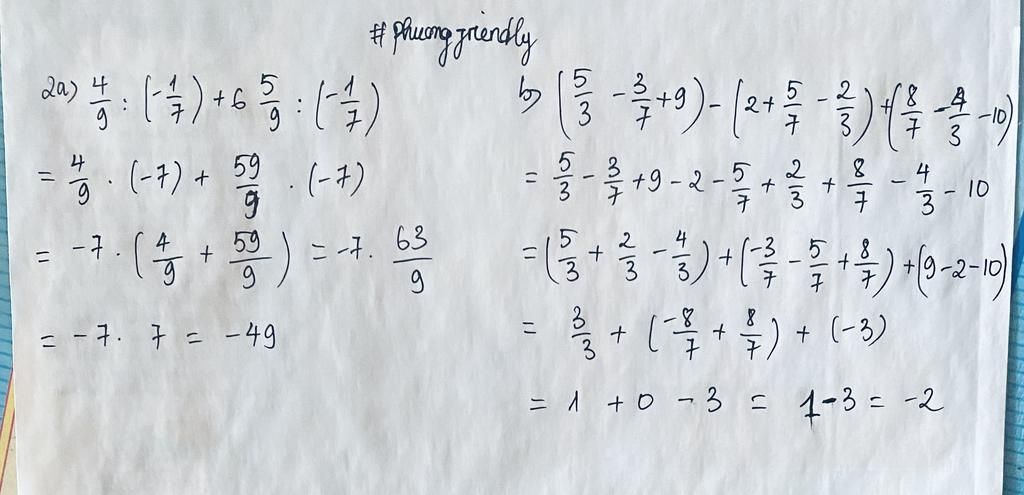 #phuongfriendly
2a) 4/9 : (-1/7) + 6 5/9 : (-1/7)
= 4/9 . (-7) + 59/9 . (-7)
= -7 . (4/9 + 59/9) = -7. 63/9
= -7. 7 = -49
b) (5/3 - 3/7 + 9) - (2 + 5/7 - 2/3) + (8/7 - 4/3 - 10)
= 5/3 - 3/7 + 9 - 2 - 5/7 + 2/3 + 8/7 - 4/3 - 10
= (5/3 + 2/3 - 4/3) + (-3/7 - 5/7 + 8/7) + (9 - 2 - 10)
= 3/3 + (-8/7 + 8/7) + (-3)
= 1 + 0 - 3 = 1 - 3 = -2